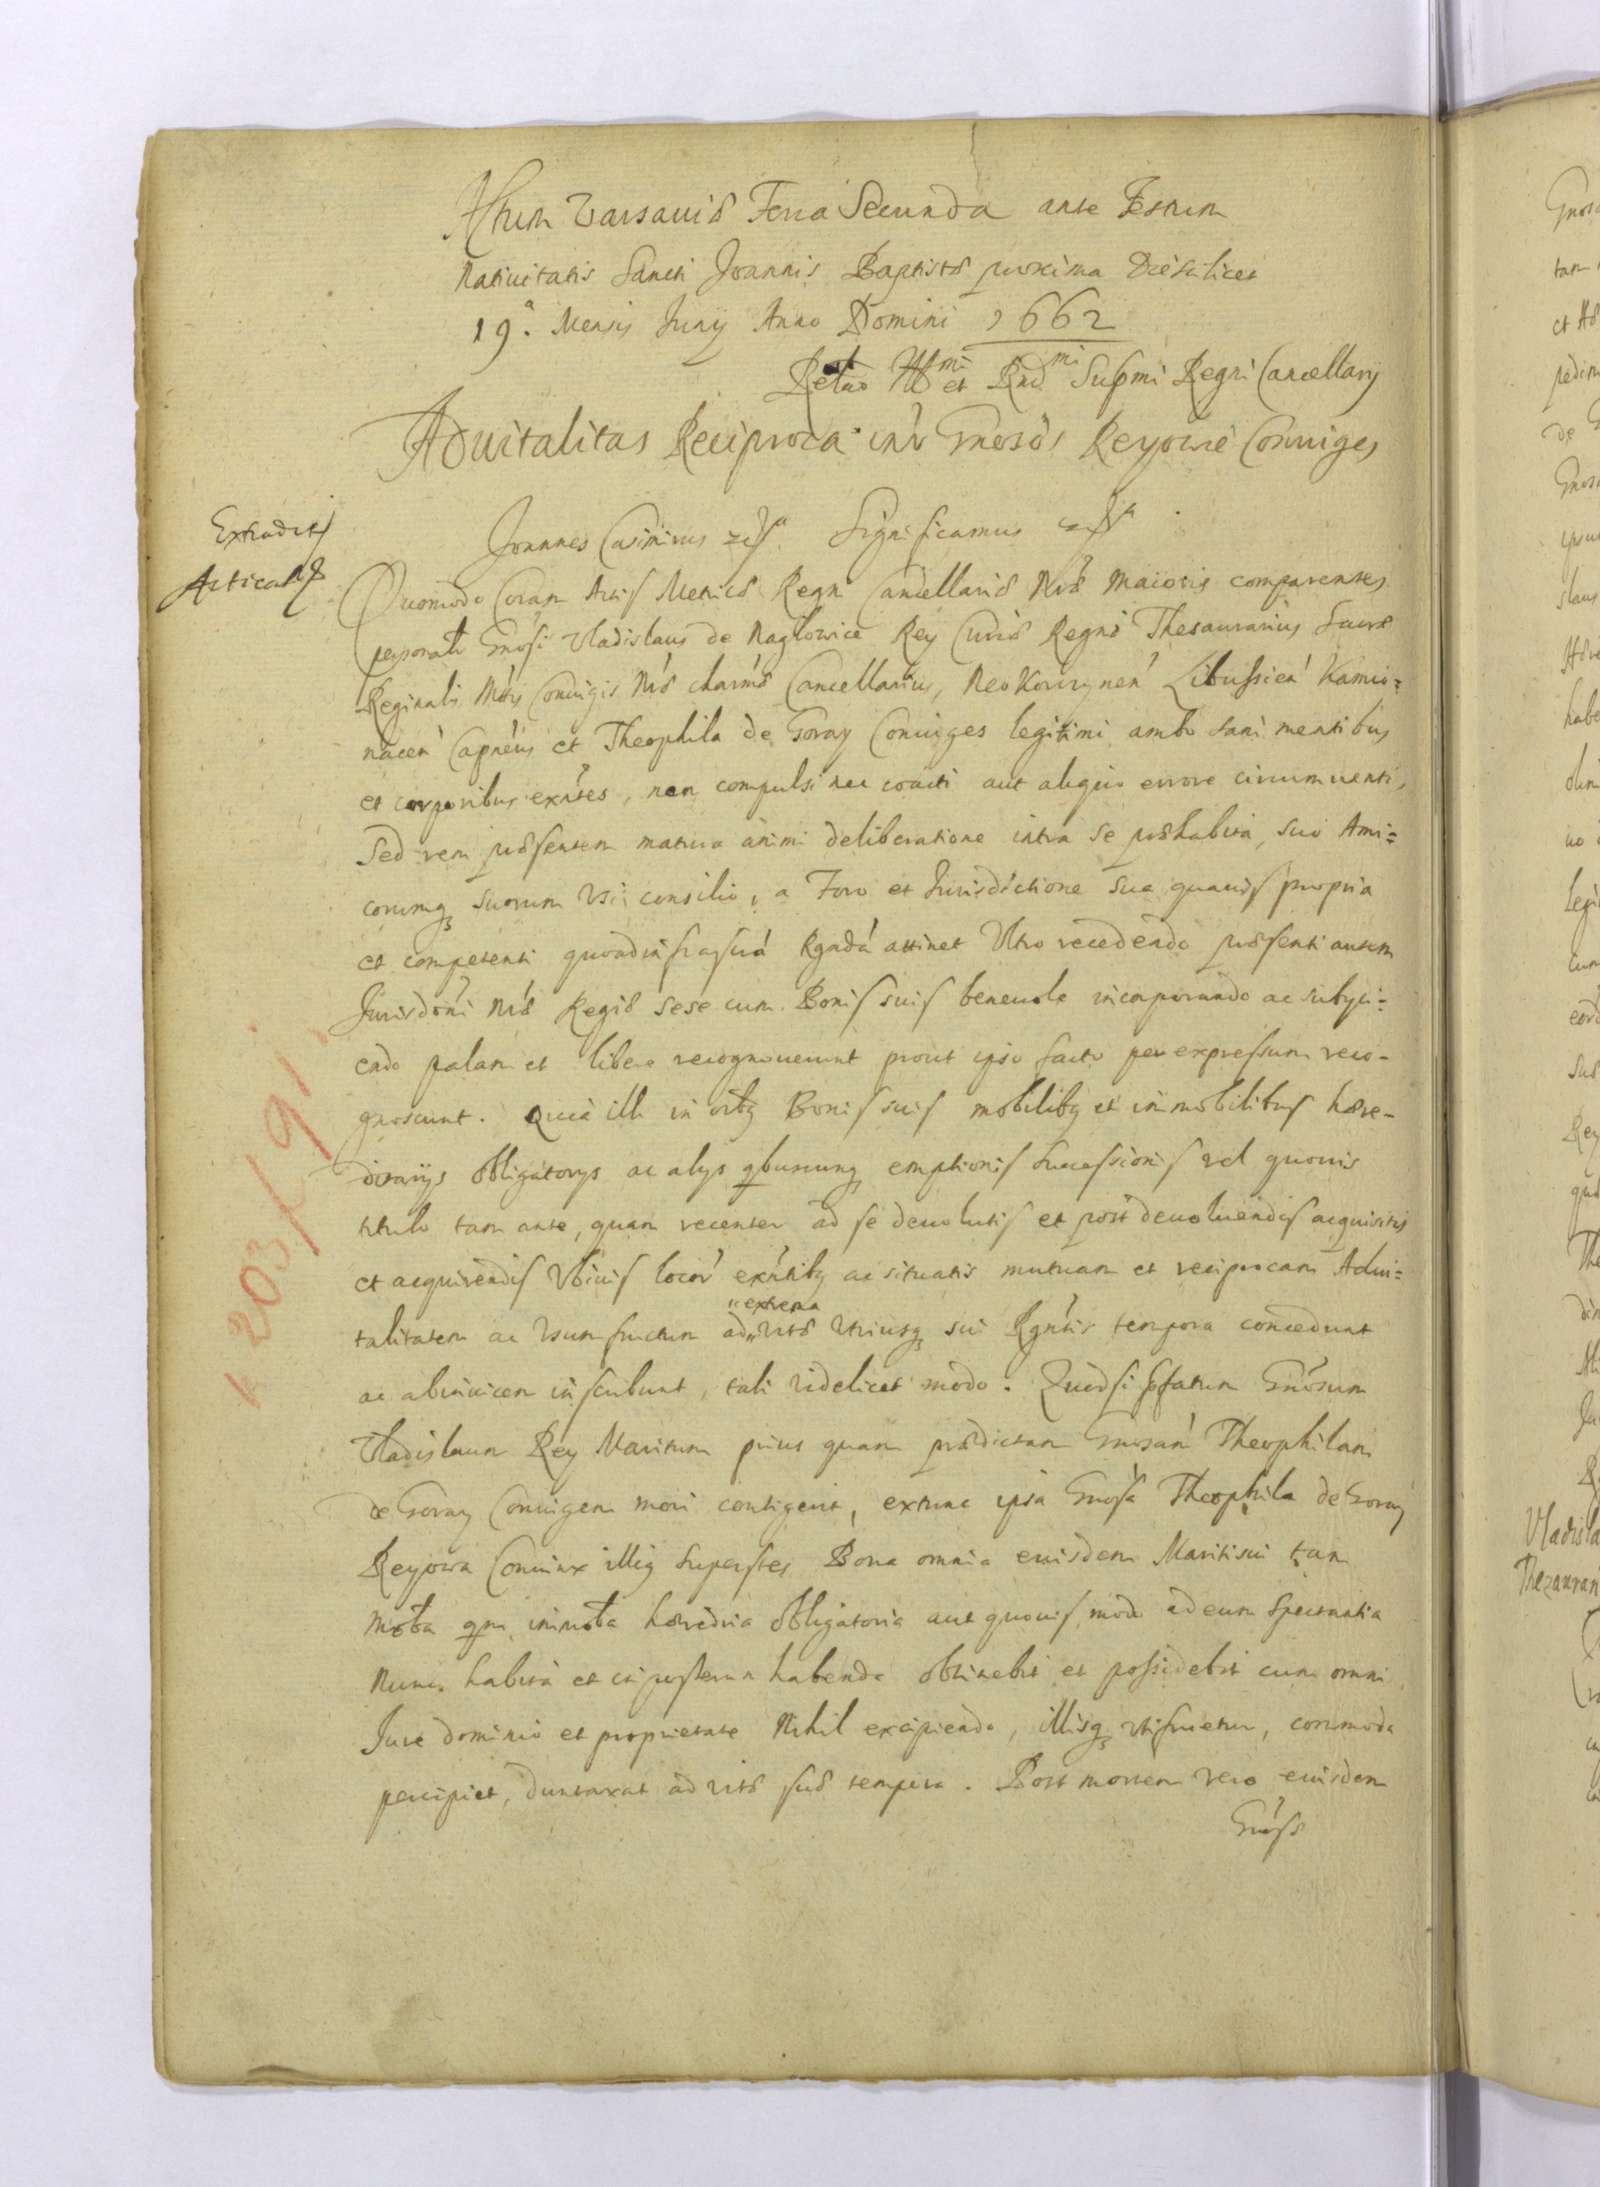 Actum Varsaviæ Feria Secunda ante Festum
Nativitatis Sancti Joannis Baptistæ proxima Die scilicet
19.ª Mensis Junij Anno Domini 1662
Relatio Illmi et Rndmi Supmi Regni Cancellarij
Advitalitas Reciproca inter Gnosos Reyowie Coniuges
Extradit
Joannes Casimirus Significamus
Quomodo Coram Actis Metrices Regni Cancellariæ Nræ Maioris comparentes
personalr Gnosi Vladislaus de Naglowice Rey Curiæ Regni Thesaurarius Sacræ
Reginalis Mtis Coniugis Næ charmæ Cancellarius, Neokorczynen Libussien Kamio=
nacen Capneus et Theophila de Goray Coniuges legitimi ambo sani mentibus
et corporibus exntes, non compulsi nec coacti aut aliquo errore circumventi,
Sed rem præsentem matura animi deliberatione intra se præhabita, suo Ami=
corumq suorum Usi consilio, a Foro et Jurisdictione Sua quavis propria
et competenti quoad infrascrá attinet Ultro recedendo præsenti autem
Jurisdoni Næ Regiæ sese cum Bonis suis benevole incorporando ac subyci=
endo palam et libere recognoverunt prout ipso facto per expressum reco-
gnoscunt. Quia illi in oibq Bonis suis mobilibq et immobilibus hære-
ditarijs obligatorys ac alys qbuscunq emptionis successionis vel quovis
titulo tam ante, quam recenter ad se devolutis et post devoluendis acquisitis
et acquirendis Ubivis locor exntibq ac situatis mutuam et reciprocam Advi=
talitatem ac Usumfructum ad "extrema vitæ Utriusq sui Rgntis tempora concedunt
ac abinvicem inscribunt, tali videlicet modo. Quodsi pfatum Gnosum
Vladislaum Rey Maritum prius quam prædictam Gnosam Theophilam
de Goray Coniugem mori contigerit, extunc ipsa Gnosa Theophila de Goray
Reyowa Coniunx illiq superstes Bona omnia eiusdem Mariti sui tam
mobta qm immobta hæredria obligatoria aut quovis modo ad eum spectantia
Nunc habita et in posterum habenda obtinebit et possidebit cum omni
Jure dominio et proprietate Nihil excipiendo, illisq utifruetur, commoda
percipiet, duntaxat ad vitæ suæ tempora. Post mortem vero eiusdem
Gnosæ